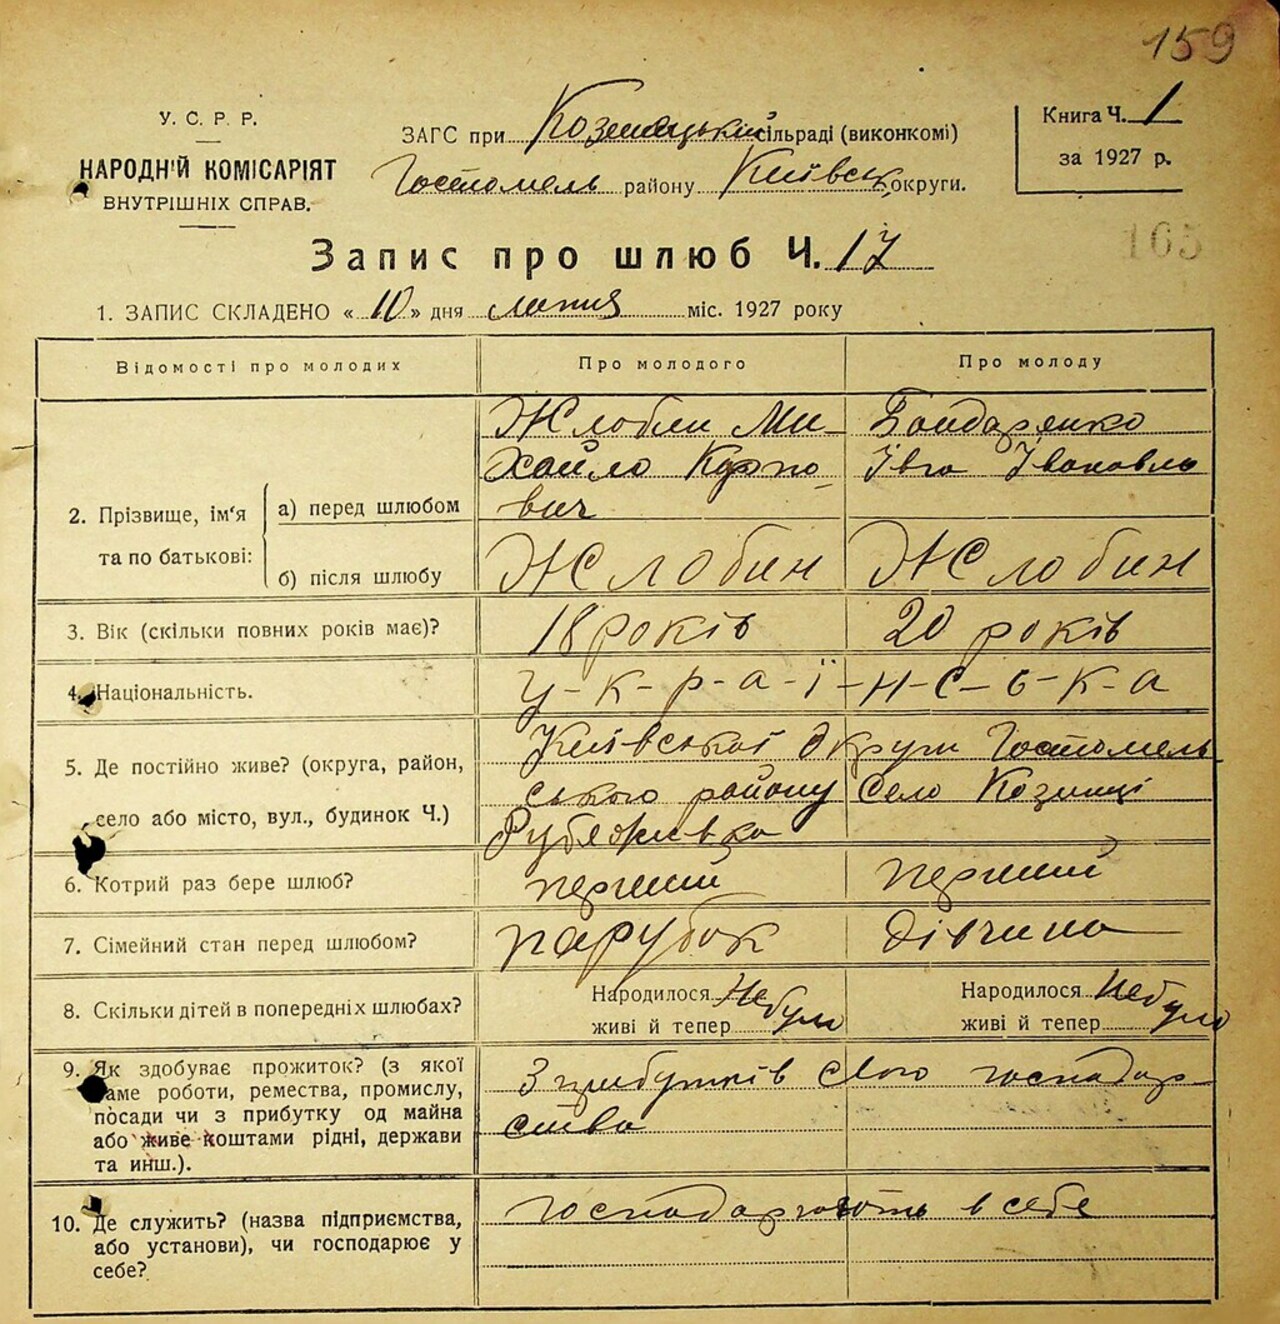 159
У. С. Р. Р.
НАРОДНІЙ КОМІСАРІЯТ
ВНУТРІШНІХ СПРАВ.
ЗАГС при сільраді (виконкомі)
Гостомель району Київськ округи.
Книга Ч. 1
за 1927 р.
165
Запис про шлюб Ч. 17
1. ЗАПИС СКЛАДЕНО « 10 » дня липня міс. 1927 року
Відомості про молодих
Про молодого
Про молоду
2. Прізвище, ім'я
та по батькові:
а) перед шлюбом
б) після шлюбу
Жлобин Ми-
хайло Карпо-
вич
Бондаренко
Івга Івановна
Жлобин
Жлобин
3. Вік (скільки повних років має)?
18 років
20 років
4. Національність.
У-к-р-а-ї-н-с-ь-к-а
5. Де постійно живе? (округа, район,
село або місто, вул., будинок Ч.)
Київської Округи Гостомель
ського району село Козинці
Рубежівка
6. Котрий раз бере шлюб?
перший
перший
7. Сімейний стан перед шлюбом?
парубок
дівчина
8. Скільки дітей в попередніх шлюбах?
Народилося Не
живі й тепер було
Народилося Не
живі й тепер було
9. Як здобуває прожиток? (з якої
саме роботи, ремества, промислу,
посади чи з прибутку од майна
або живе коштами рідні, держави
та инш.).
З прибутків свого господар-
ства
10. Де служить? (назва підприємства,
або установи), чи господарює у
себе?
господарюють в себе